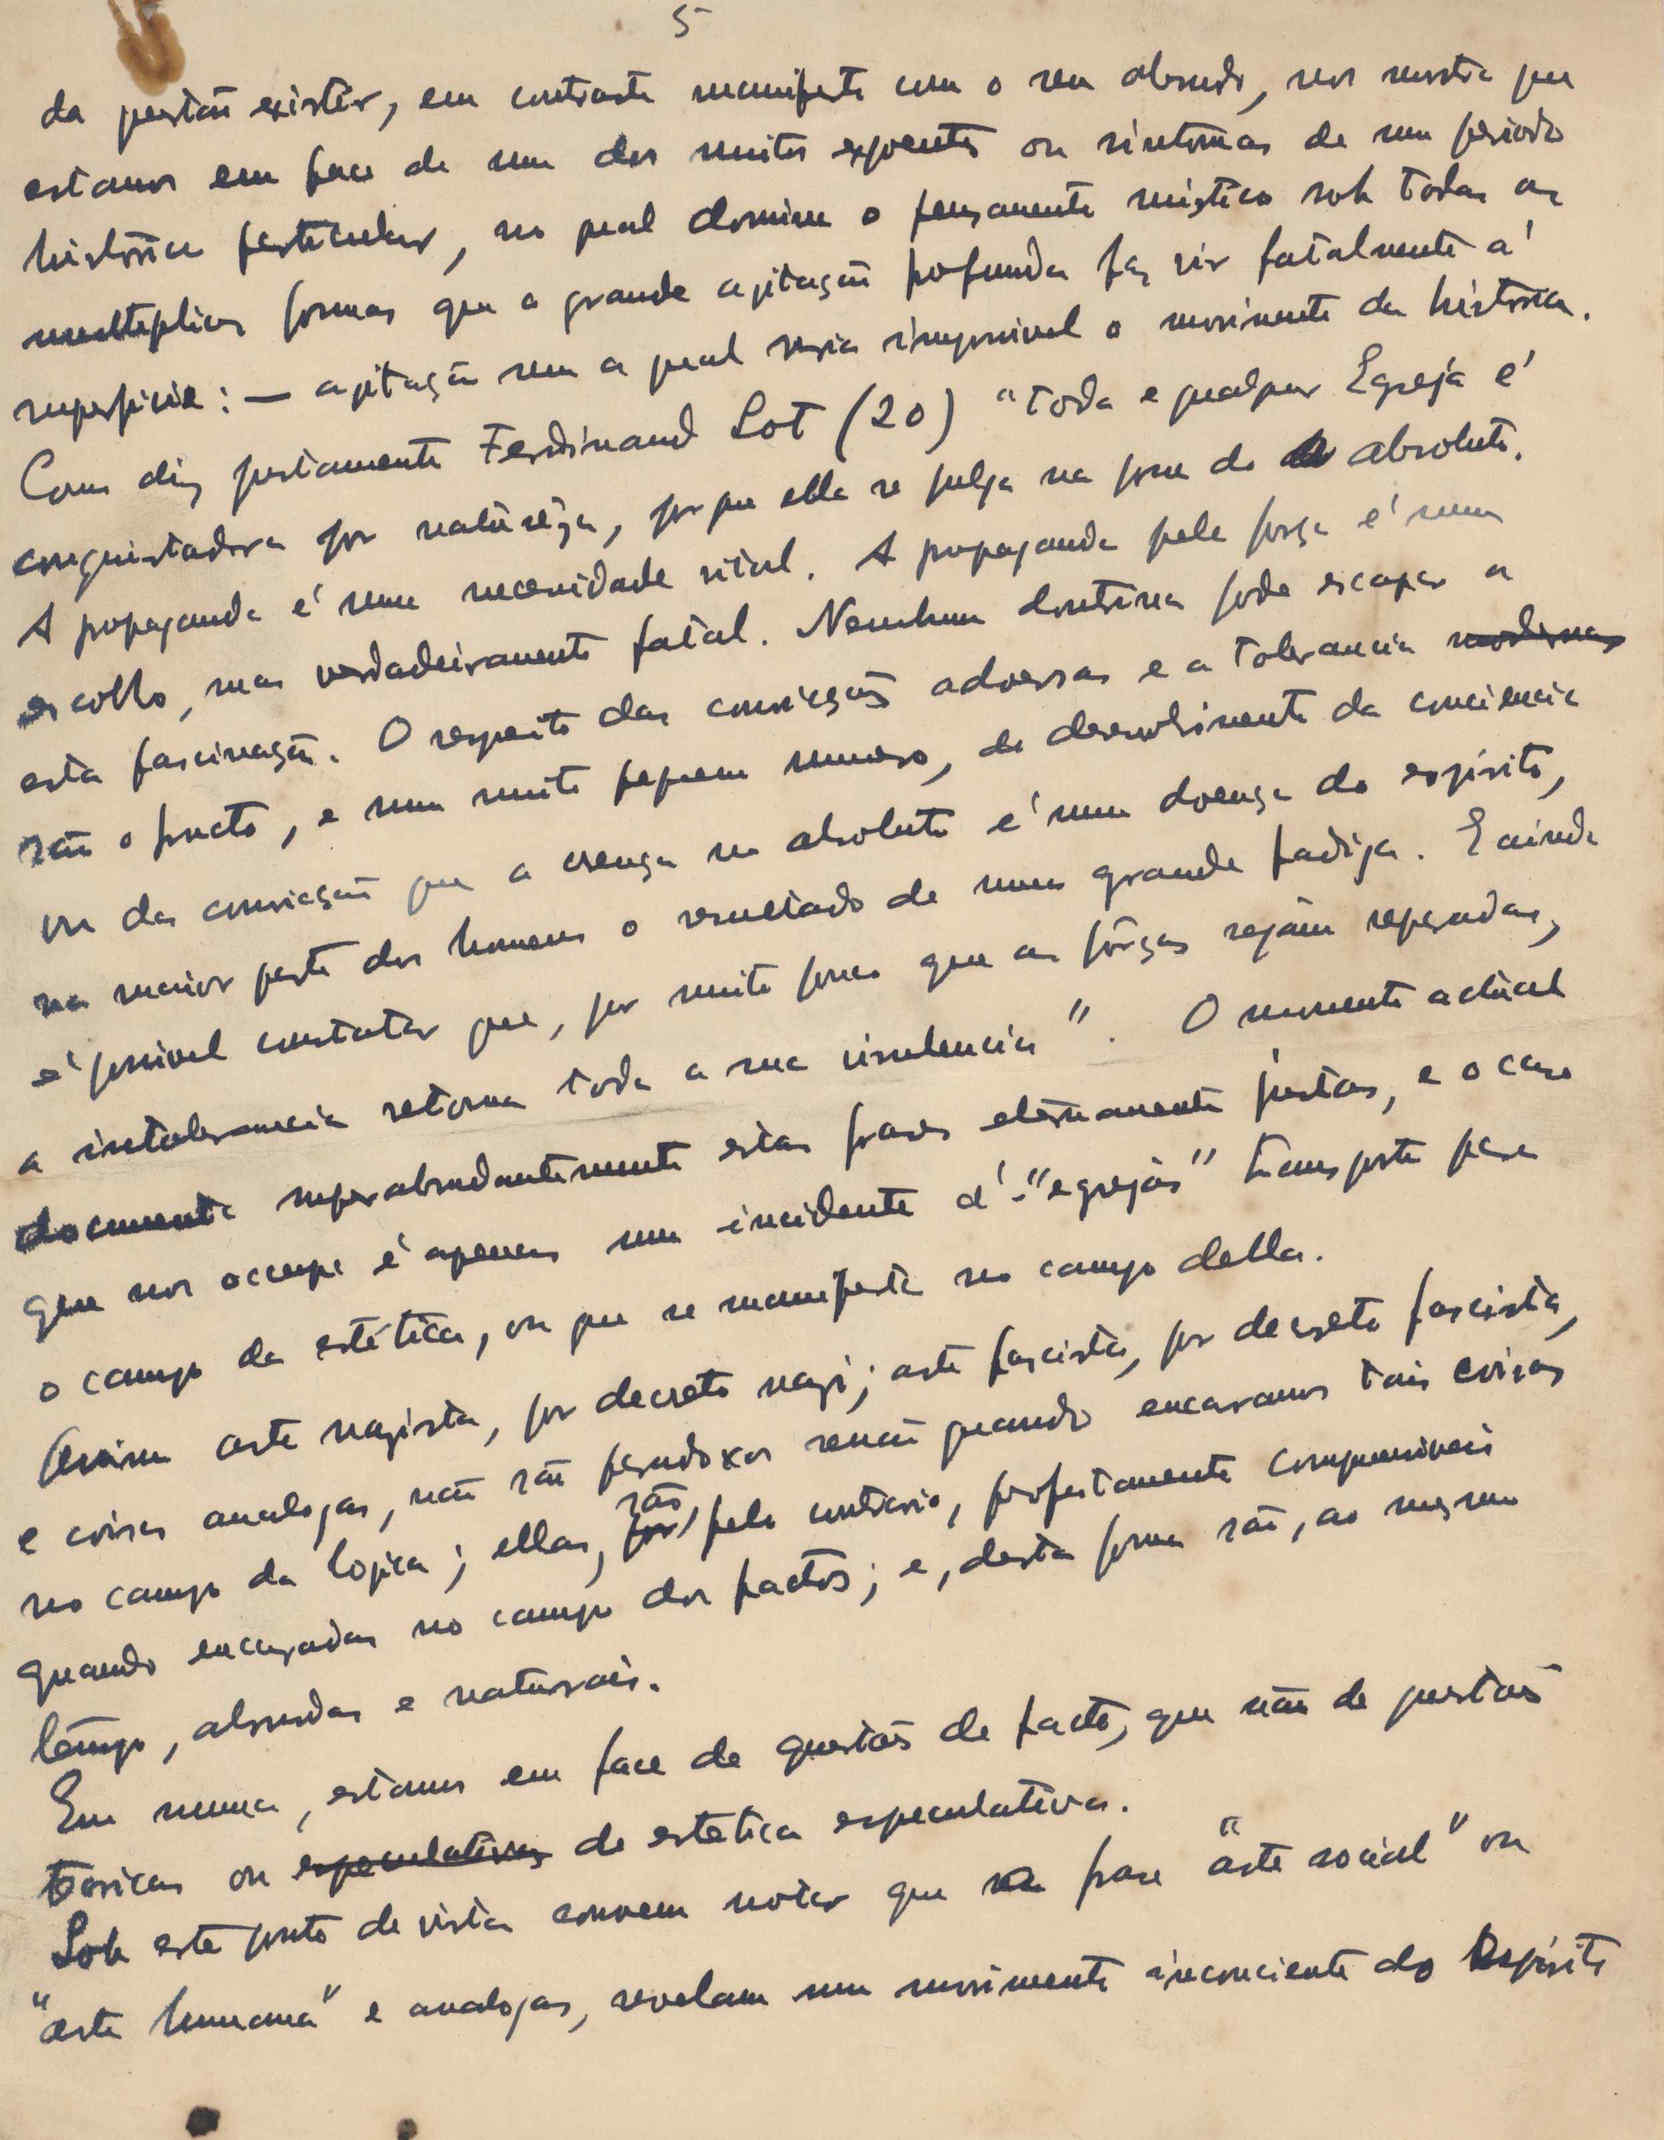 5
da questão existir, em contraste manifesto com o seu absurdo, nos mostra que
estamos em face de um dos muitos expoentes ou sintomas de um periodo
historico particular, no qual domina o pensamento mistico sob todas as
multiplices formas que a grande agitação profunda faz vir fatalmente á
superficie: — agitação sem a qual seria impossivel o movimento da historia.
Como diz justamente Ferdinand Lot (20) "toda e qualquer Egreja é
conquistadora por natureza, por que ella se julga na posse do absoluto.
A propaganda é uma necessidade vital. A propaganda pela força é um
escolho, mas verdadeiramente fatal. Nenhuma doutrina pode escapar a
esta fascinação. O respeito das convicções adversas e a tolerancia modernas
são o fructo, e num muito pequeno numero, do desenvolvimento da conciencia
ou da convicção que a crença no absoluto é uma doença do espirito,
na maior parte dos homens o resultado de uma grande fadiga. E ainda
é possivel constatar que, por muito pouco que as fôrças sejam reparadas,
a intolerancia retoma toda a sua virulencia". O momento actual
documenta superabundantemente estas frases eternamente justas, e o caso
que nos occupa é apenas um incidente q' "egrejas" transporta para
o campo da estética, ou que se manifesta no campo della.
Assim arte nazista, por decreto nazi; arte fascista, por decreto fascista,
e coisas analogas, não são paradoxos senão quando encaramos tais coisas
no campo da logica; ellas, são, pelo contrario, perfeitamente compreensiveis
quando encaradas no campo dos factos; e, desta forma são, ao mesmo
tempo, absurdas e naturais.
Em suma, estamos em face de questões de facto, que não de questões
teoricas ou especulativas de estetica especulativa.
Sob este ponto de vista convem notar que a frase "arte social" ou
"arte humana" e analogas, revelam um movimento inconciente do Espirito